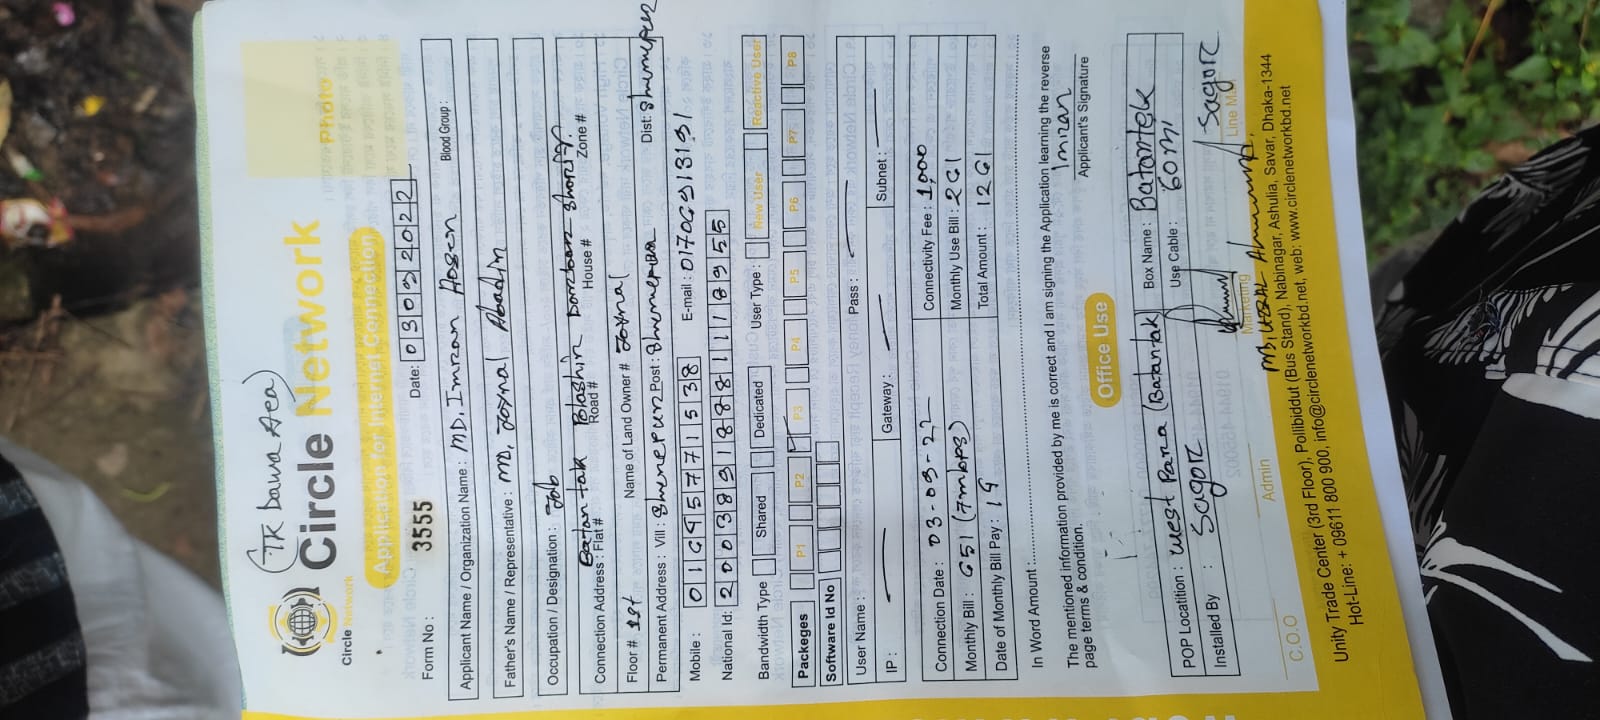 (TK Dawa Area)
Circle Network
Circle Network
Photo
Application for Internet Connection
Form No : 3555
Date: 03092022
Applicant Name / Organization Name : MD, Imran Hosen
Blood Group :
Father's Name / Representative : MD, Joynal Abadin
Occupation / Designation : Job
Batan tak Boshir
Connection Address : Flat# Road# House# Zone#
Floor # 1st Name of Land Owner # Joynal
Permanent Address : Vill : Post : Dist:
Mobile : 01695771538 E-mail :
National Id:
Bandwidth Type Shared Dedicated User Type : New User Reactive User
Packeges P1 P2 P3 P4 P5 P6 P7 P8
Software Id No
User Name : Pass :
IP : Gateway : Subnet :
Connection Date : 03-09-22 Connectivity Fee : 1,000
Monthly Bill : 651 (7mbps) Monthly Use Bill : 261
Date of Monthly Bill Pay : Total Amount : 1261
In Word Amount :
The mentioned information provided by me is correct and I am signing the Application learning the reverse
page terms & condition.
Imran
Applicant's Signature
Office Use
POP Locatition : West Para (Batantak) Box Name : Batantek
Installed By : Sagor Use Cable : 60m
Sagor
C.O.O Admin Marketing Line Ma
Unity Trade Center (3rd Floor), Pollibiddut (Bus Stand), Nabinagar, Ashulia, Savar, Dhaka-1344
Hot-Line: + 09611 800 900, info@circlenetworkbd.net, web: www.circlenetworkbd.net